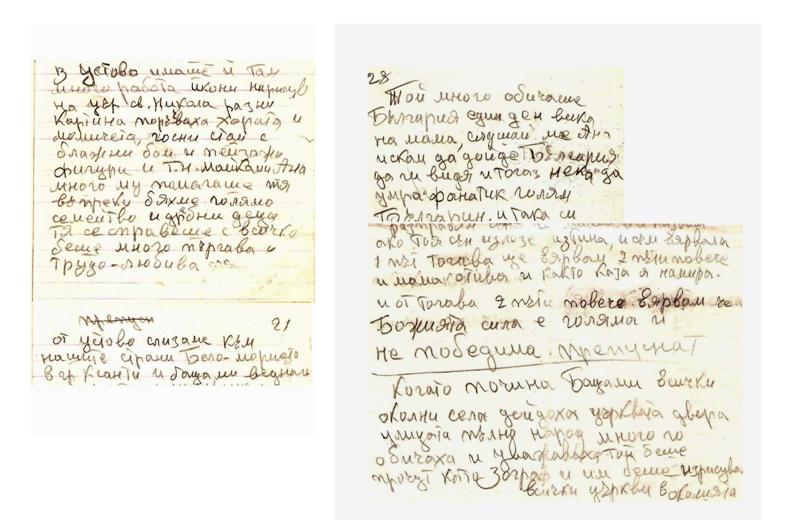 В Устово имаше и там
много работа икони нарисув
на цър св. Никола разни
картина поръчваха хората и
момичета, госни стаи с
блажни бои и пейзажи
фигури и Т.Н. майками Ана
много му помагаше тя
въпреки бяхме голямо
семейство и дробни деца
тя се справеше с всичко
беше много пъргава и
трудо-любива
21
от устово слизаме към
нашите страни Бело-морието
в гр Ксанти и бащами веднага
28
Той много обичаше
България един ден вика
на мама, слушай ме Ана
искам да дойде България
да ги видя и тогаз нека да
умра фанатик голям
Българин. и така си
ако тоя сън излезе истина, и съм вярвала
1 път тогава ще вярвам 2 пъти повече
и мама отива и както каза я намира.
и от тогава 2 пъти повече вярвам че
Божията сила е голяма и
не победима. препуснат
Когато почина Бащами всички
околни села дойдоха църквата двера
улицата пълна народ много го
обичаха и уважаваха той беше
прочут като Зограф и им беше изрисува
всички църкви в околията